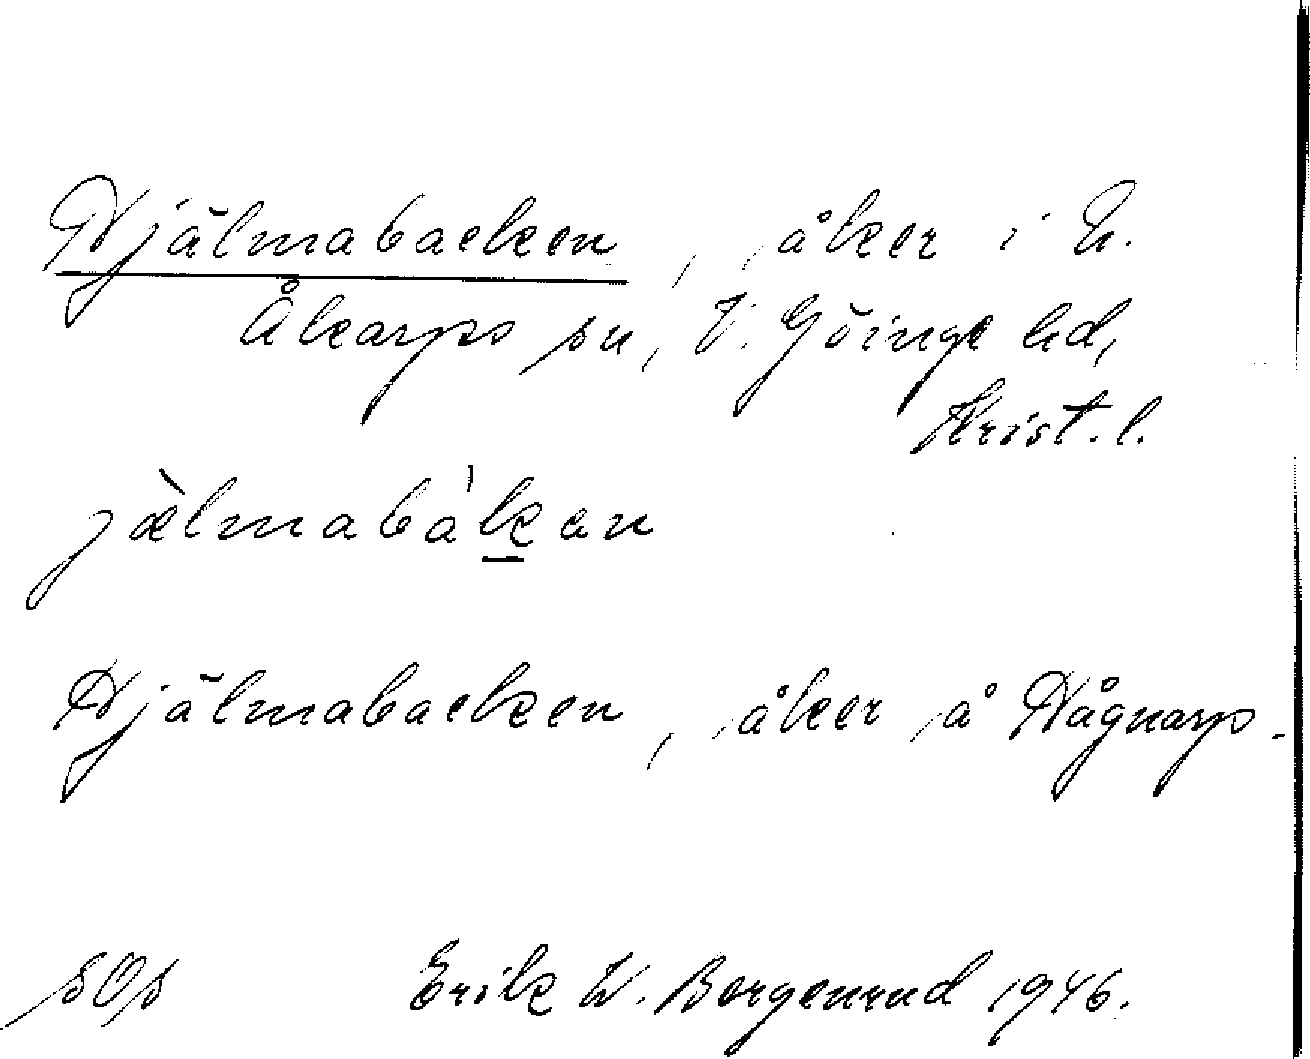 Hjälmabacken, åker i N.
Åkarps sn, V. Göinge hd,
Krist. l.
jæ̀lmabákan
Hjälmabacken, åker å Hågnarp.
sOs Erik W. Borgenrud 1946.